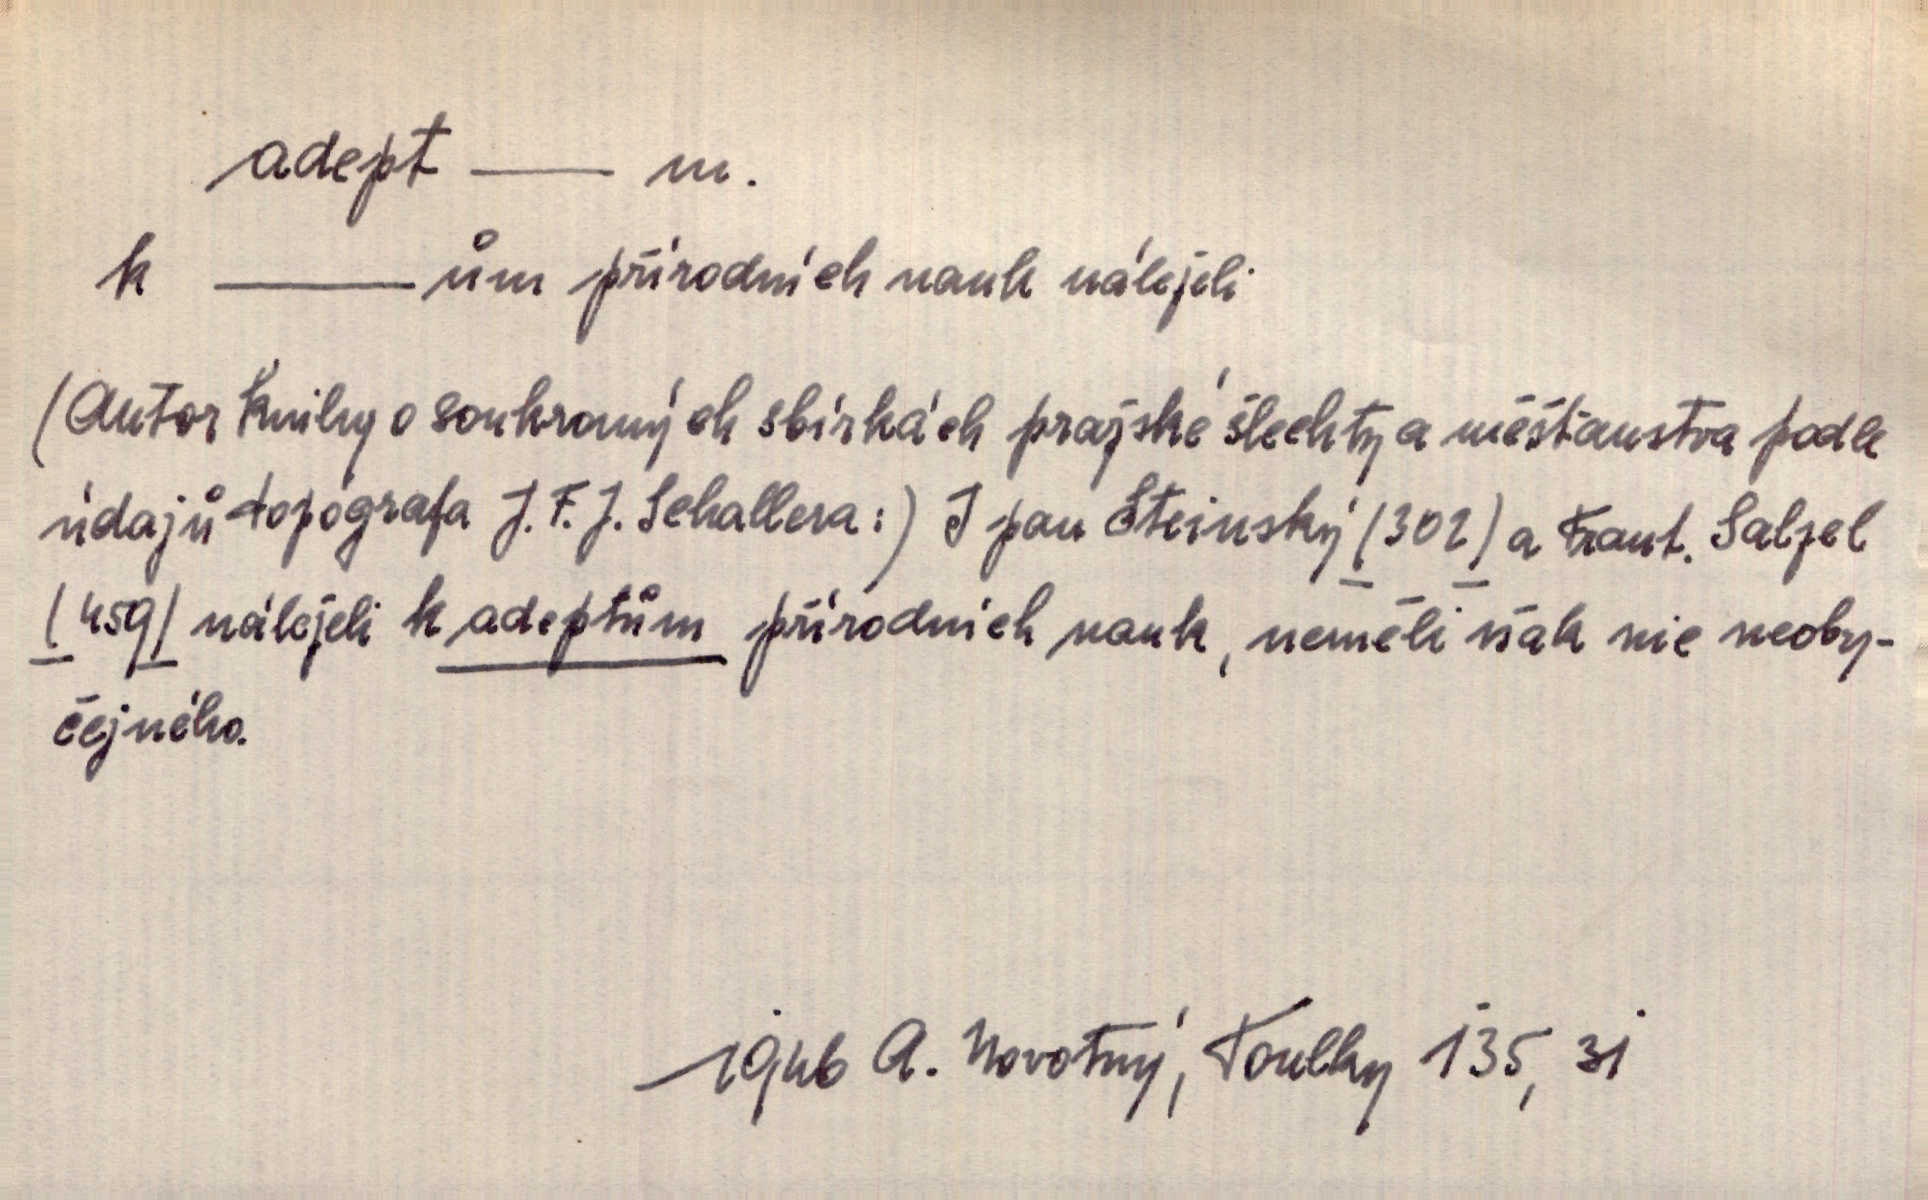 adept —— m.
k ——ům přírodních nauk náleželi
(Autor knihy o soukromých sbírkách pražské šlechty a měšťanstva podle
údajů topografa J. F. J. Schallera:) I pan Steinský (302) a Frant. Salzel
(459) náleželi k adeptům přírodních nauk, neměli však nic neoby-
čejného.
1946 A. Novotný, Toulky 135, zi